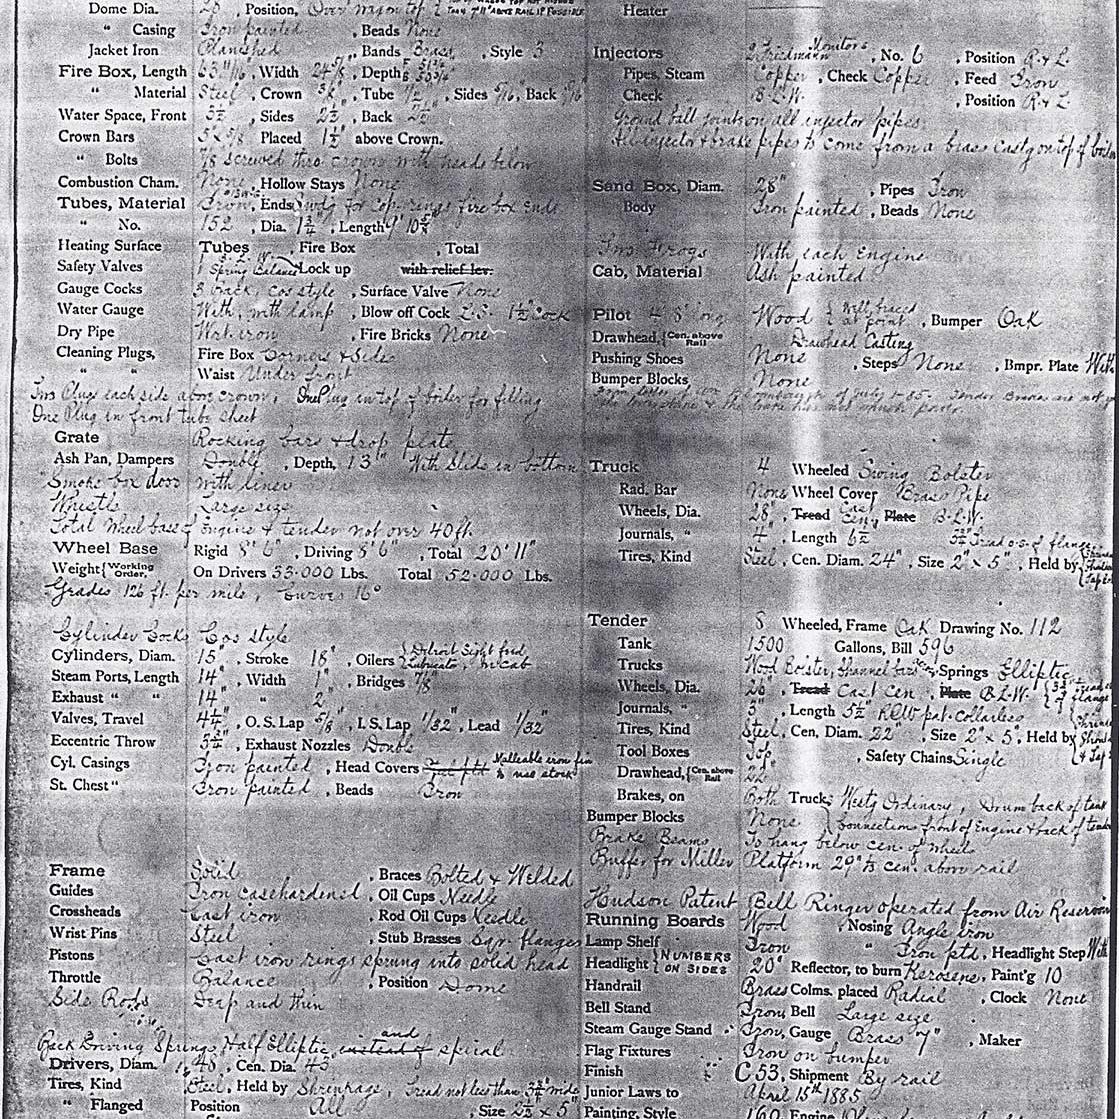 Dome Dia. 28" , Position, Over wagon top
" Casing Iron painted , Beads None
Jacket Iron Planished , Bands Brass , Style 3
Fire Box, Length 63 11/16" , Width 24 7/8 , Depth
" Material Steel , Crown 3/8" , Tube 1/2" , Sides 5/16, Back 5/16"
Water Space, Front 3 1/2" , Sides 2 1/2" , Back 2 1/2"
Crown Bars 5" x 5/8" Placed 1 1/2" above Crown.
" Bolts 7/8 screwed thro crown with heads below
Combustion Cham. None , Hollow Stays None
Tubes, Material Iron , Ends Swdg for cop. rings fire box ends
" No. 152 , Dia. 1 3/4" , Length 9' 10
Heating Surface Tubes , Fire Box , Total
Safety Valves 1 Spring Balance Lock up with relief lev.
Gauge Cocks 3 back, cos style , Surface Valve None
Water Gauge With, with lamp , Blow off Cock L.S. 1 1/2" cock
Dry Pipe Wrt. iron , Fire Bricks None
Cleaning Plugs, Fire Box Corners & Sides
" " Waist Under front
Two Plugs each side above crown, One Plug in top of boiler for filling
One Plug in front tube sheet
Grate Rocking bars & drop plate
Ash Pan, Dampers Double , Depth, 13" With Slide in bottom
Smoke box door with liner
Whistle Large size
Total Wheel base of Engine & tender not over 40 ft.
Wheel Base Rigid 8' 6" , Driving 8' 6" , Total 20' 11"
Weight { Working Order, On Drivers 33.000 Lbs. Total 52.000 Lbs.
Grades 126 ft. per mile, Curves 16°
Cylinder Cocks Cos style
Cylinders, Diam. 15" , Stroke 18" , Oilers { Detroit Sight feed Lubricator, in Cab
Steam Ports, Length 14" , Width 1" , Bridges 7/8"
Exhaust " " 14" " 2"
Valves, Travel 4 1/2" , O. S. Lap 5/8" , I. S. Lap 1/32" , Lead 1/32"
Eccentric Throw , Exhaust Nozzles Double
Cyl. Casings Iron painted , Head Covers Malleable iron fin to use stock
St. Chest " Iron painted , Beads Iron
Frame Solid , Braces Bolted & Welded
Guides Iron casehardened , Oil Cups Needle
Crossheads Cast iron , Rod Oil Cups Needle
Wrist Pins Steel , Stub Brasses Sqr. flanges
Pistons Cast iron rings sprung into solid head
Throttle Balance , Position Dome
Side Rods Deep and thin
Back Driving Springs, Half Elliptic, and instead of spiral
Drivers, Diam. 48" , Cen. Dia. 43
Tires, Kind Steel , Held by Shrinkage, Tread not less than 3 3/4" wide
" Flanged Position All , Size 2 1/2 x 5"
Heater
Injectors 2 Friedmann Monitors , No. 6 , Position R. & L.
Pipes, Steam Copper , Check Copper , Feed Iron
Check B.L.W. , Position R. & L.
Ground ball joints on all injector pipes.
All injector & brake pipes to come from a brass castg on top of boiler
Sand Box, Diam. 28" , Pipes Iron
Body Iron painted , Beads None
Two Frogs With each Engine
Cab, Material Ash painted
Pilot 4' 8" long Wood { Well braced at point , Bumper Oak
Drawhead, { Cen. above Rail Drawhead Casting
Pushing Shoes None , Steps None , Bmpr. Plate With
Bumper Blocks None
Truck 4 Wheeled Swing Bolster
Rad. Bar None Wheel Cover Brass Pipe
Wheels, Dia. 28" , Tread Cast Cen. Plate B.L.W.
Journals, " 4" , Length 6 1/2
Tires, Kind Steel , Cen. Diam. 24" , Size 2" x 5" , Held by
Tender 8 Wheeled, Frame Oak Drawing No. 112
Tank 1500 Gallons, Bill 596
Trucks Wood Bolster, Channel bars , Springs Elliptic
Wheels, Dia. 26" , Tread Cast Cen , Plate B.L.W.
Journals, " 3" , Length 5 1/2" pat. collarless
Tires, Kind Steel, Cen. Diam. 22" , Size 2" x 5", Held by
Tool Boxes Top , Safety Chains Single
Drawhead, { Cen. above Rail 22"
Brakes, on Both Truck: Westg Ordinary, Drum back of tank
Bumper Blocks None connections front of Engine & back of tender
Brake Beams To hang below cen. of wheels
Buffer for Miller Platform 29" cen. above rail
Hudson Patent Bell Ringer operated from Air Reservoir
Running Boards Wood , Nosing Angle iron
Lamp Shelf Iron " Iron ptd. , Headlight Step With
Headlight { NUMBERS ON SIDES 20" Reflector, to burn Kerosene, Paint'g 10
Handrail Brass Colms. placed Radial , Clock None
Bell Stand Iron, Bell Large size
Steam Gauge Stand Iron, Gauge Brass 7" , Maker
Flag Fixtures Iron on bumper
Finish C 53, Shipment By rail
Junior Laws to April 15th 1885
Painting, Style 160, Engine